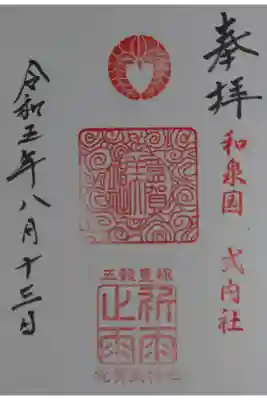 奉拝
和泉国 式内社
五穀豊穣
祈雨
止雨
令和五年八月十三日